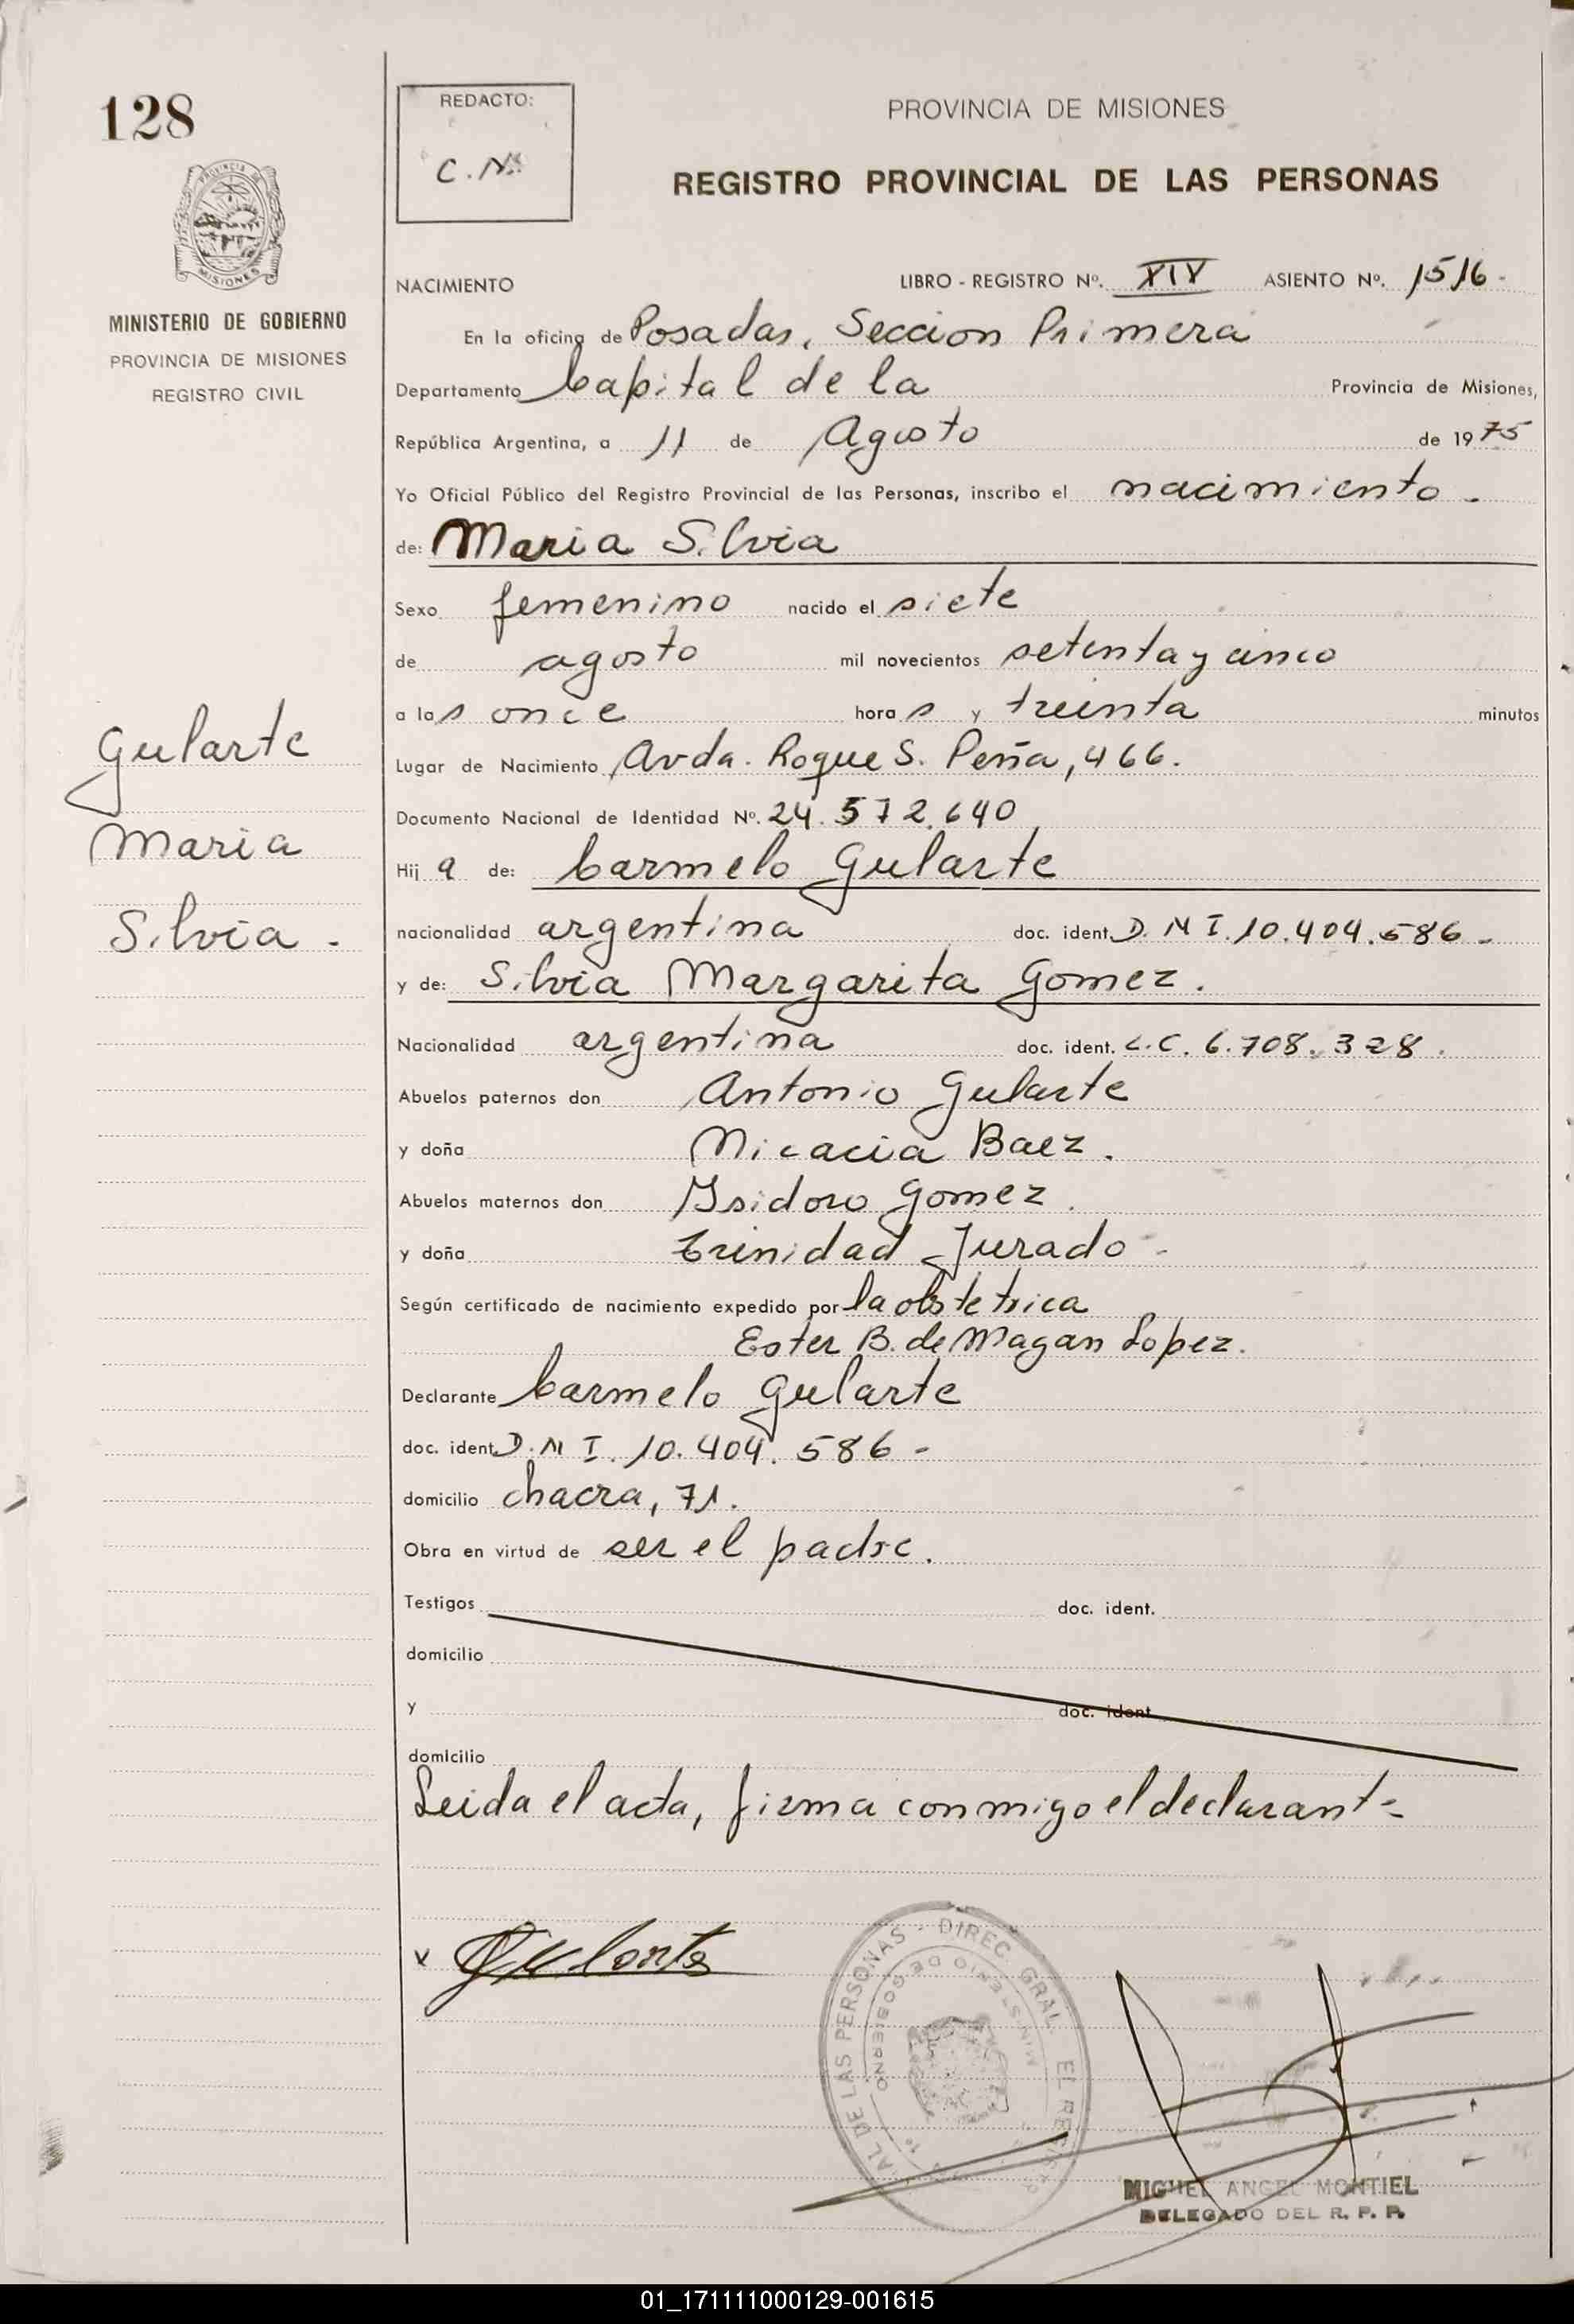 128
REDACTO:
C. N.
PROVINCIA DE MISIONES
REGISTRO PROVINCIAL DE LAS PERSONAS
PROVINCIA DE
MISIONES
MINISTERIO DE GOBIERNO
PROVINCIA DE MISIONES
REGISTRO CIVIL
NACIMIENTO LIBRO - REGISTRO Nº. XIV ASIENTO Nº. 1516 -
En la oficina de Posadas, Seccion Primera
Departamento Capital de la Provincia de Misiones,
República Argentina, a 11 de Agosto de 1975
Yo Oficial Público del Registro Provincial de las Personas, inscribo el nacimiento -
de: Maria Silvia
Sexo femenino nacido el siete
de agosto mil novecientos setenta y cinco
a las once horas y treinta minutos
Lugar de Nacimiento Avda. Roque S. Peña, 466.
Documento Nacional de Identidad Nº. 24.572.640
Hija de: Carmelo Gularte
nacionalidad argentina doc. ident. D.N I. 10.404.586 -
y de: Silvia Margarita Gomez.
Nacionalidad argentina doc. ident. L.C. 6.708.328.
Abuelos paternos don Antonio Gularte
y doña Nicacia Baez.
Abuelos maternos don Isidoro Gomez.
y doña Trinidad Jurado -
Según certificado de nacimiento expedido por la obstetrica
Ester B. de Magan Lopez.
Declarante Carmelo Gularte
doc. ident. D.N I. 10.404.586 -
domicilio chacra, 71.
Obra en virtud de ser el padre.
Testigos doc. ident.
domicilio
y doc. ident
domicilio
Leida el acta, firma conmigo el declarante
Gularte
Maria
Silvia -
x Gularte
AL DE LAS PERSONAS - DIREC. GRAL. EL REGISTR
MINISTERIO DE GOBIERNO
MIGUEL ANGEL MONTIEL
DELEGADO DEL R. P. P.
01_171111000129-001615